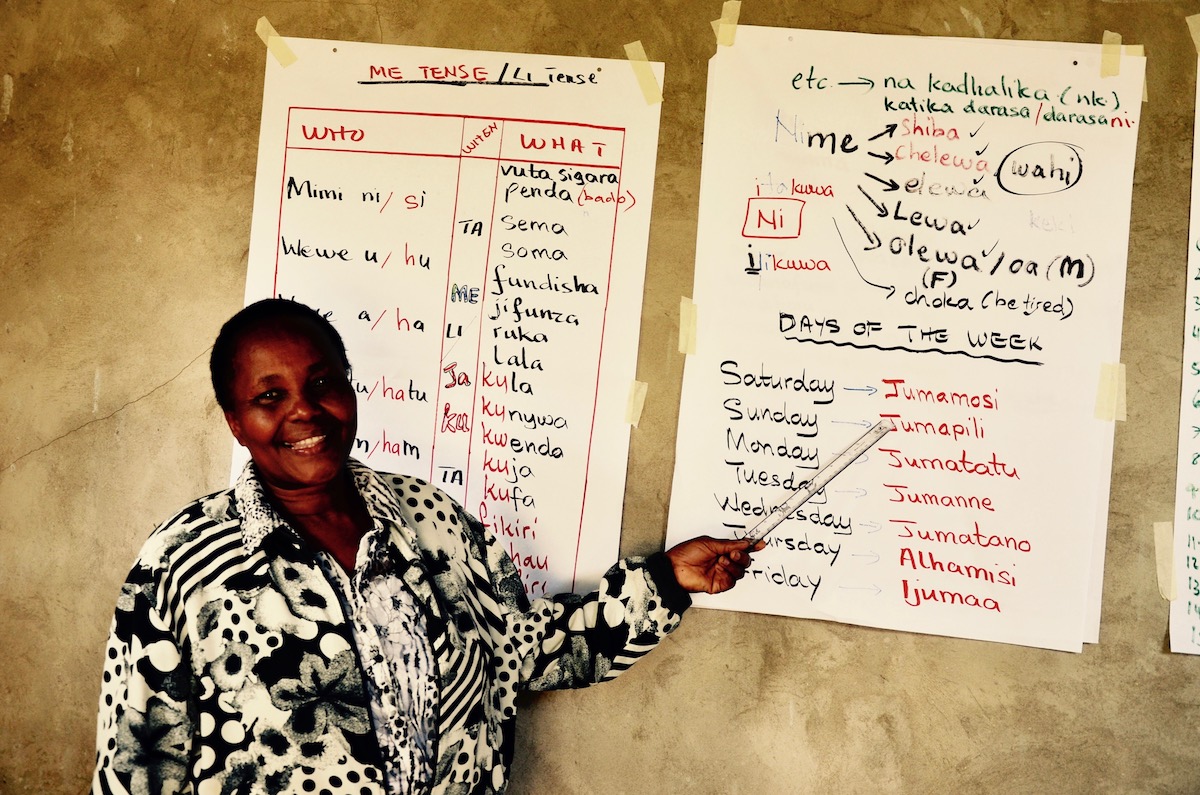 ME TENSE / LI Tense
WHO WHEN WHAT
vuta sigara
Mimi ni/si penda (bado)
TA sema
soma
Wewe u/hu
fundisha
ME jifunza
a/ha LI ruka
lala
Ja kula
u/hatu
ku kunywa
kwenda
m/ham kuja
TA kufa
fikiri
hau
etc. → na kadhalika (nk).
katika darasa/darasani.
Nime → Shiba ✓
→ Chelewa ✓ wahi
itakuwa → elewa ✓
→ Lewa ✓
Ni → Olewa ✓/oa (M)
ilikuwa (F)
→ choka (be tired)
DAYS OF THE WEEK
Saturday → Jumamosi
Sunday → Jumapili
Monday → Jumatatu
Tuesday → Jumanne
Wednesday → Jumatano
Thursday → Alhamisi
Friday → Ijumaa